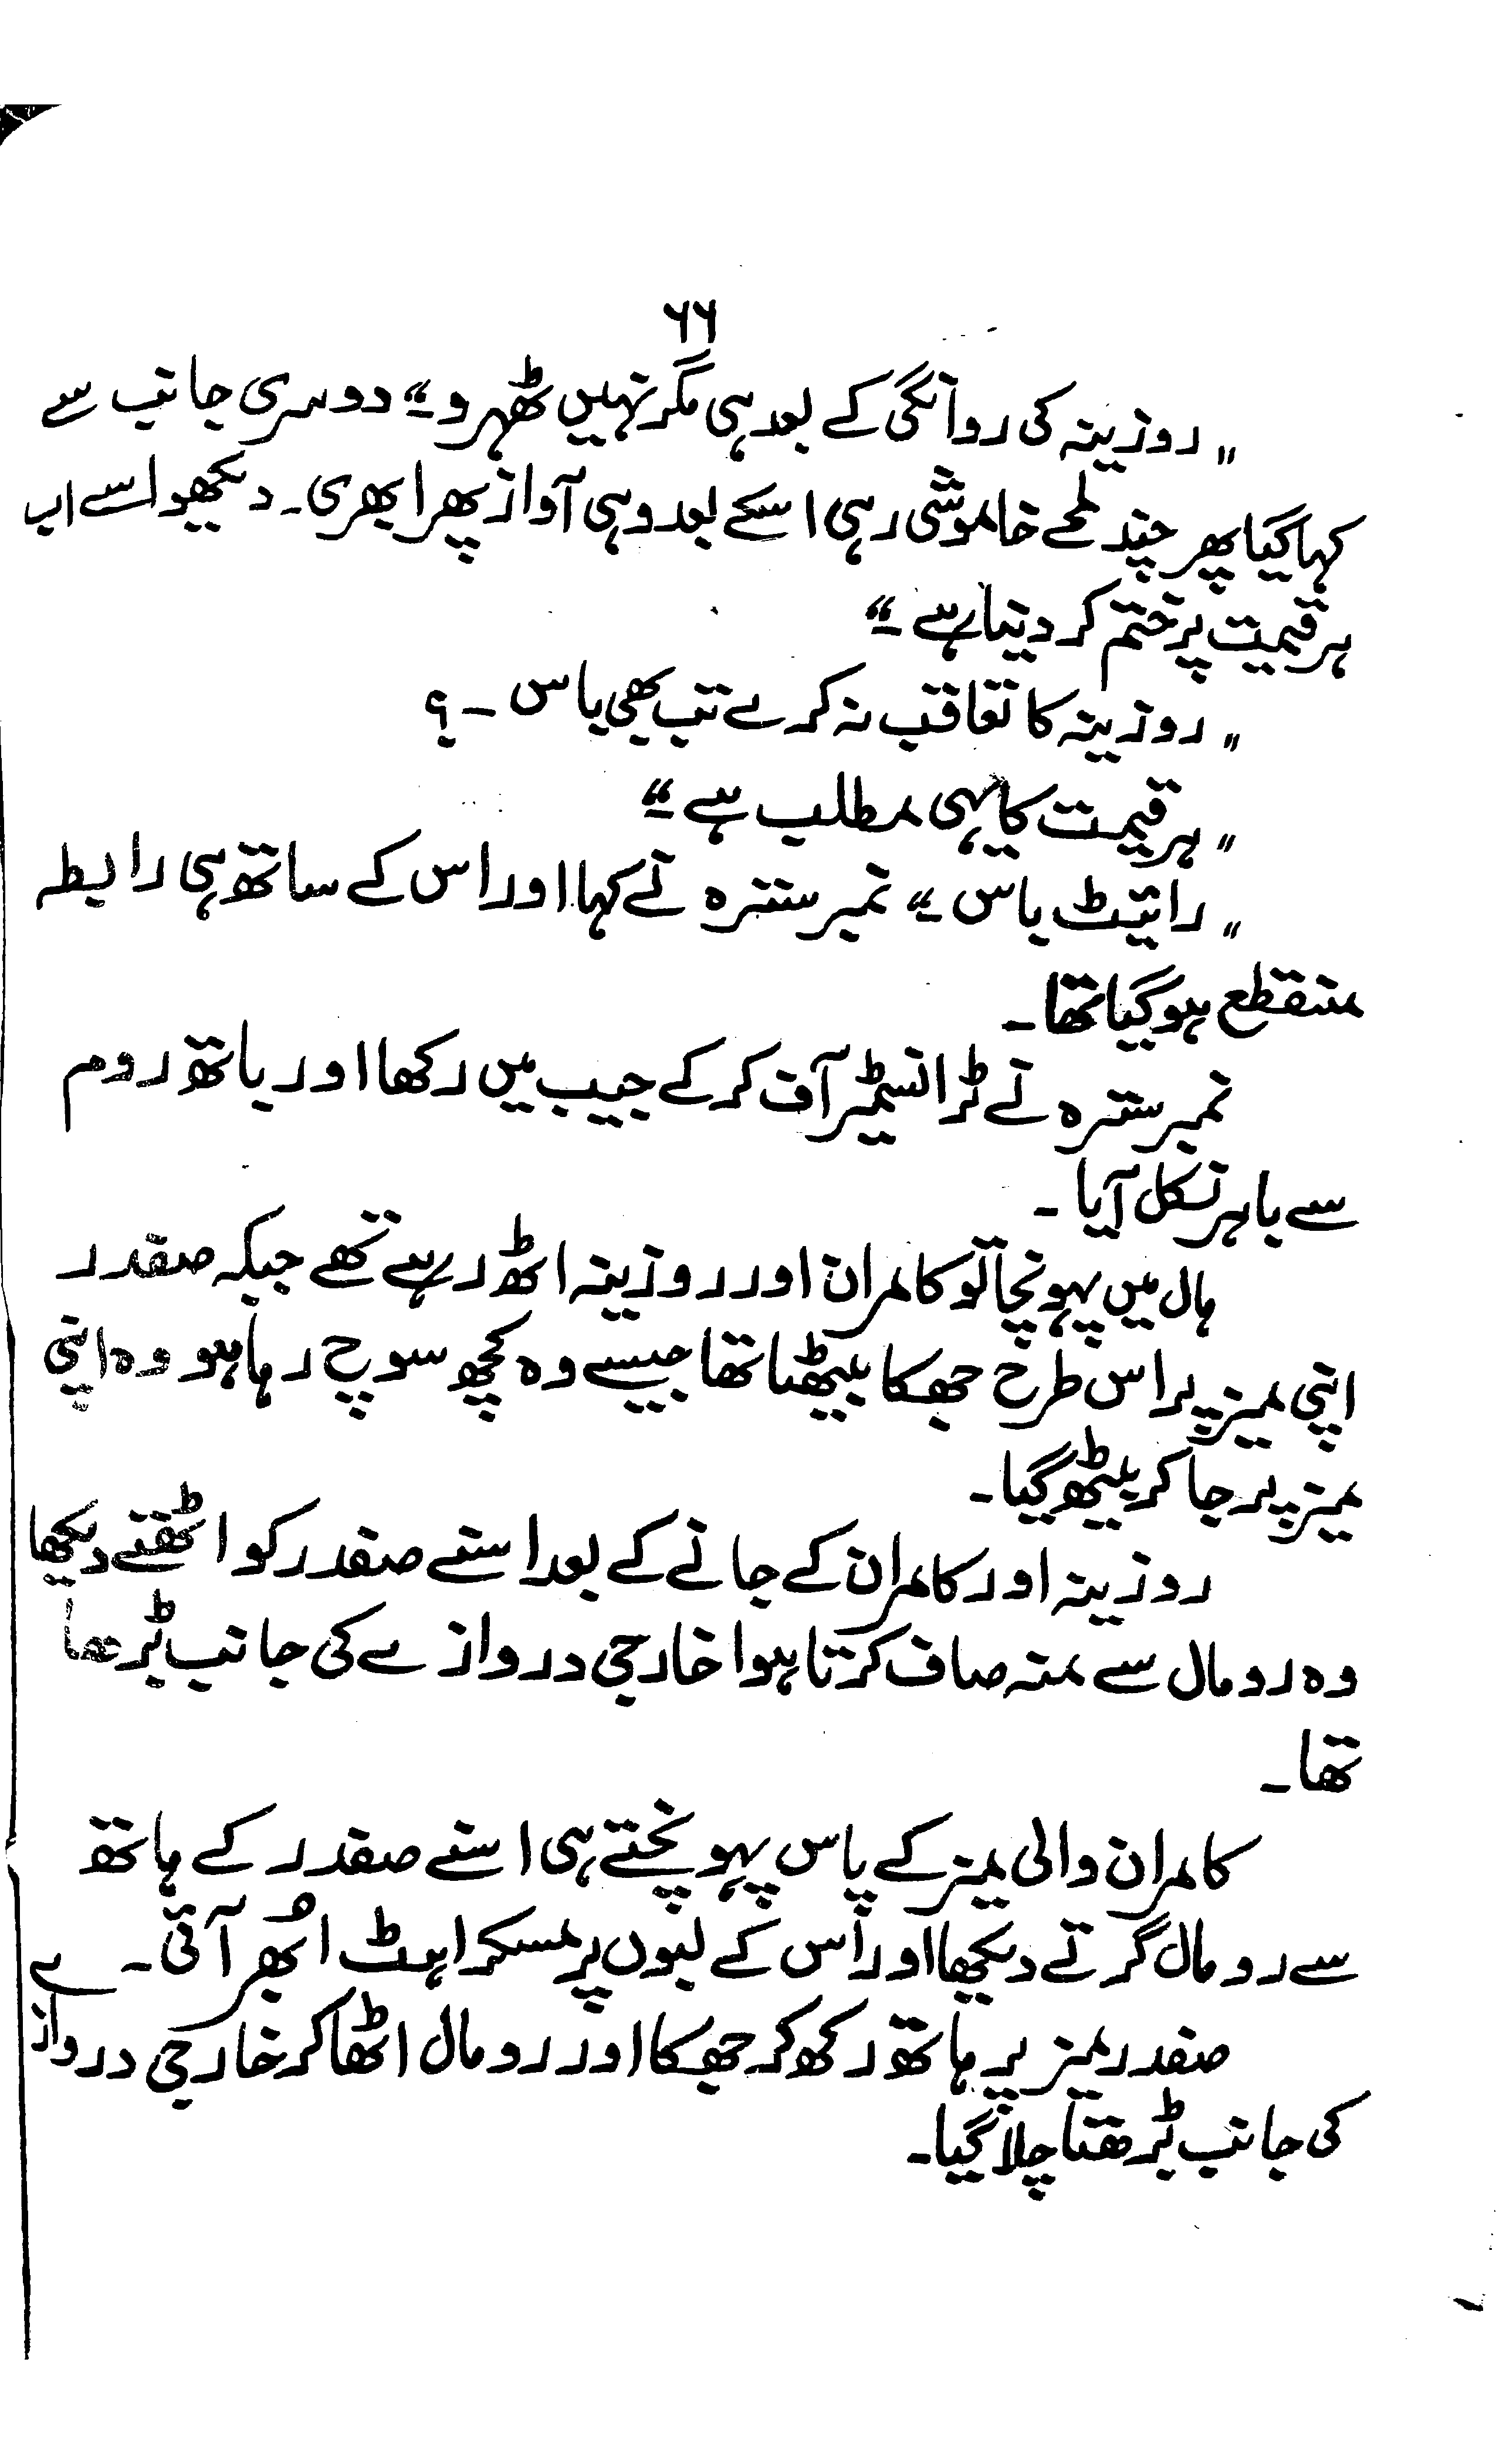 ۶۶
"روزینہ کی روانگی کے بعد ہی مگر نہیں ٹھہرو۔" دوسری جانب سے
کہا گیا پھر چند لمحے خاموشی رہی اسکے بعد وہی آواز پھر ابھری۔ دیکھو اسے اب
ہر قیمت پر ختم کر دینا ہے۔"
"روزینہ کا تعاقب نہ کرے تب بھی باس ۔؟
"ہر قیمت کا یہی مطلب ہے۔"
"رائیٹ باس۔" نمبر سترہ نے کہا اور اس کے ساتھ ہی رابطہ
منقطع ہو گیا تھا۔
نمبر سترہ نے ٹرانسمیٹر آف کر کے جیب میں رکھا اور باتھ روم
سے باہر نکل آیا۔
ہال میں پہونچا تو کامران اور روزینہ اٹھ رہے تھے جبکہ صفدر
اپنی میز پر اس طرح جھکا بیٹھا تھا جیسے وہ کچھ سوچ رہا ہو وہ اپنی
میز پر جا کر بیٹھ گیا۔
روزینہ اور کامران کے جانے کے بعد اسنے صفدر کو اٹھتے دیکھا
وہ رومال سے منہ صاف کرتا ہوا خارجی دروازے کی جانب بڑھا
تھا۔
کامران والی میز کے پاس پہونچتے ہی اسنے صفدر کے ہاتھ
سے رومال گرتے دیکھا اور اس کے لبوں پر مسکراہٹ اُبھر آئی۔
صفدر میز پر ہاتھ رکھ کر جھکا اور رومال اٹھا کر خارجی دروازے
کی جانب بڑھتا چلا گیا۔